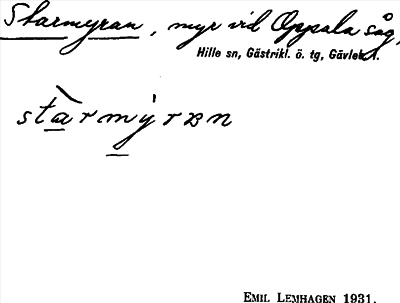 Starmyran, myr vid Oppala såg,
Hille sn, Gästrikl. ö. tg, Gävleb. l.
stàrmýrɐn
EMIL LEMHAGEN 1931.